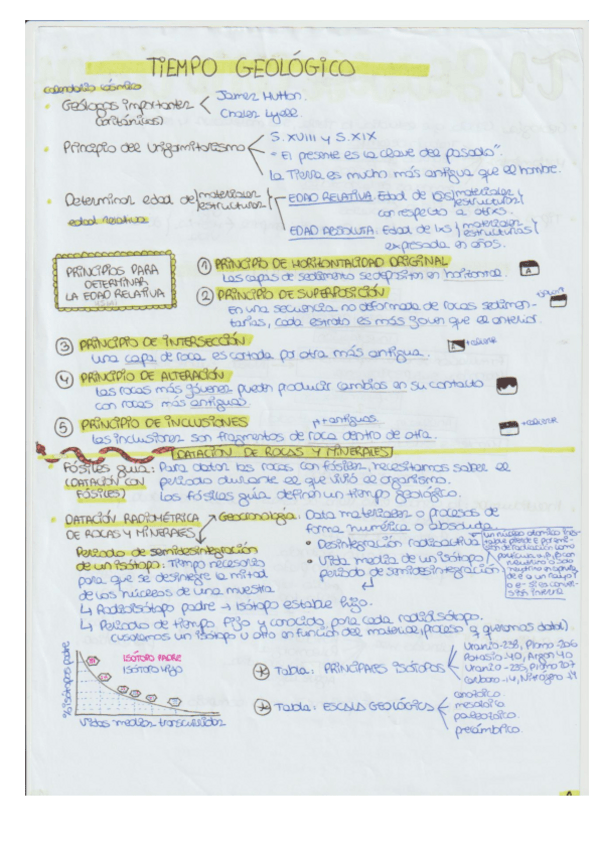 TIEMPO GEOLÓGICO
calendario cósmico
Geólogos importantes
(británicos)
James Hutton.
Charles Lyell.
Principio del Uniformitarismo
S. XVIII y S. XIX
"El presente es la clave del pasado".
La Tierra es mucho más antigua que el hombre.
Determinar edad de materiales estructuras
edad relativa
EDAD RELATIVA. Edad de los materiales estructuras
con respecto a otros.
EDAD ABSOLUTA. Edad de los materiales estructuras
expresada en años.
PRINCIPIOS PARA
DETERMINAR
LA EDAD RELATIVA
① PRINCIPIO DE HORIZONTALIDAD ORIGINAL
Las capas de sedimento se depositan en horizontal.
A
② PRINCIPIO DE SUPERPOSICIÓN
En una secuencia no deformada de rocas sedimen-
tarias, cada estrato es más joven que el anterior.
③ PRINCIPIO DE INTERSECCIÓN
una capa de roca es cortada por otra más antigua.
④ PRINCIPIO DE ALTERACIÓN
Las rocas más jóvenes pueden producir cambios en su contacto
con rocas más antiguas.
⑤ PRINCIPIO DE INCLUSIONES
++ antiguas
Las inclusiones son fragmentos de roca dentro de otra.
DATACIÓN DE ROCAS Y MINERALES
Fósiles guía: Para datar las rocas con fósiles, necesitamos saber el
(DATACIÓN CON periodo durante el que vivió el organismo.
FÓSILES) Los fósiles guía definen un tiempo geológico.
DATACIÓN RADIOMÉTRICA
DE ROCAS Y MINERALES
Geocronología: Data materiales o procesos de
forma numérica o absoluta.
Desintegración radioactiva
Vida media de un isótopo
periodo de semidesintegración
un núcleo atómico
Periodo de semidesintegración
de un isótopo: Tiempo necesario
para que se desintegre la mitad
de los núcleos de una muestra
↳ Radioisótopo padre → isótopo estable hijo.
↳ Periodo de tiempo fijo y conocido para cada radioisótopo.
(usaremos un isótopo u otro en función del material/proceso q queramos datar)
% isótopos padre
ISÓTOPO PADRE
ISÓTOPO HIJO
Vidas medias transcurridas
Tabla: PRINCIPALES ISÓTOPOS
Uranio-238, Plomo 206
Potasio 40, Argon 40
Uranio-235, Plomo 207
Carbono-14, Nitrógeno 14
Tabla: ESCALA GEOLÓGICA
cenozoico.
mesozoico
paleozoico.
precámbrico.